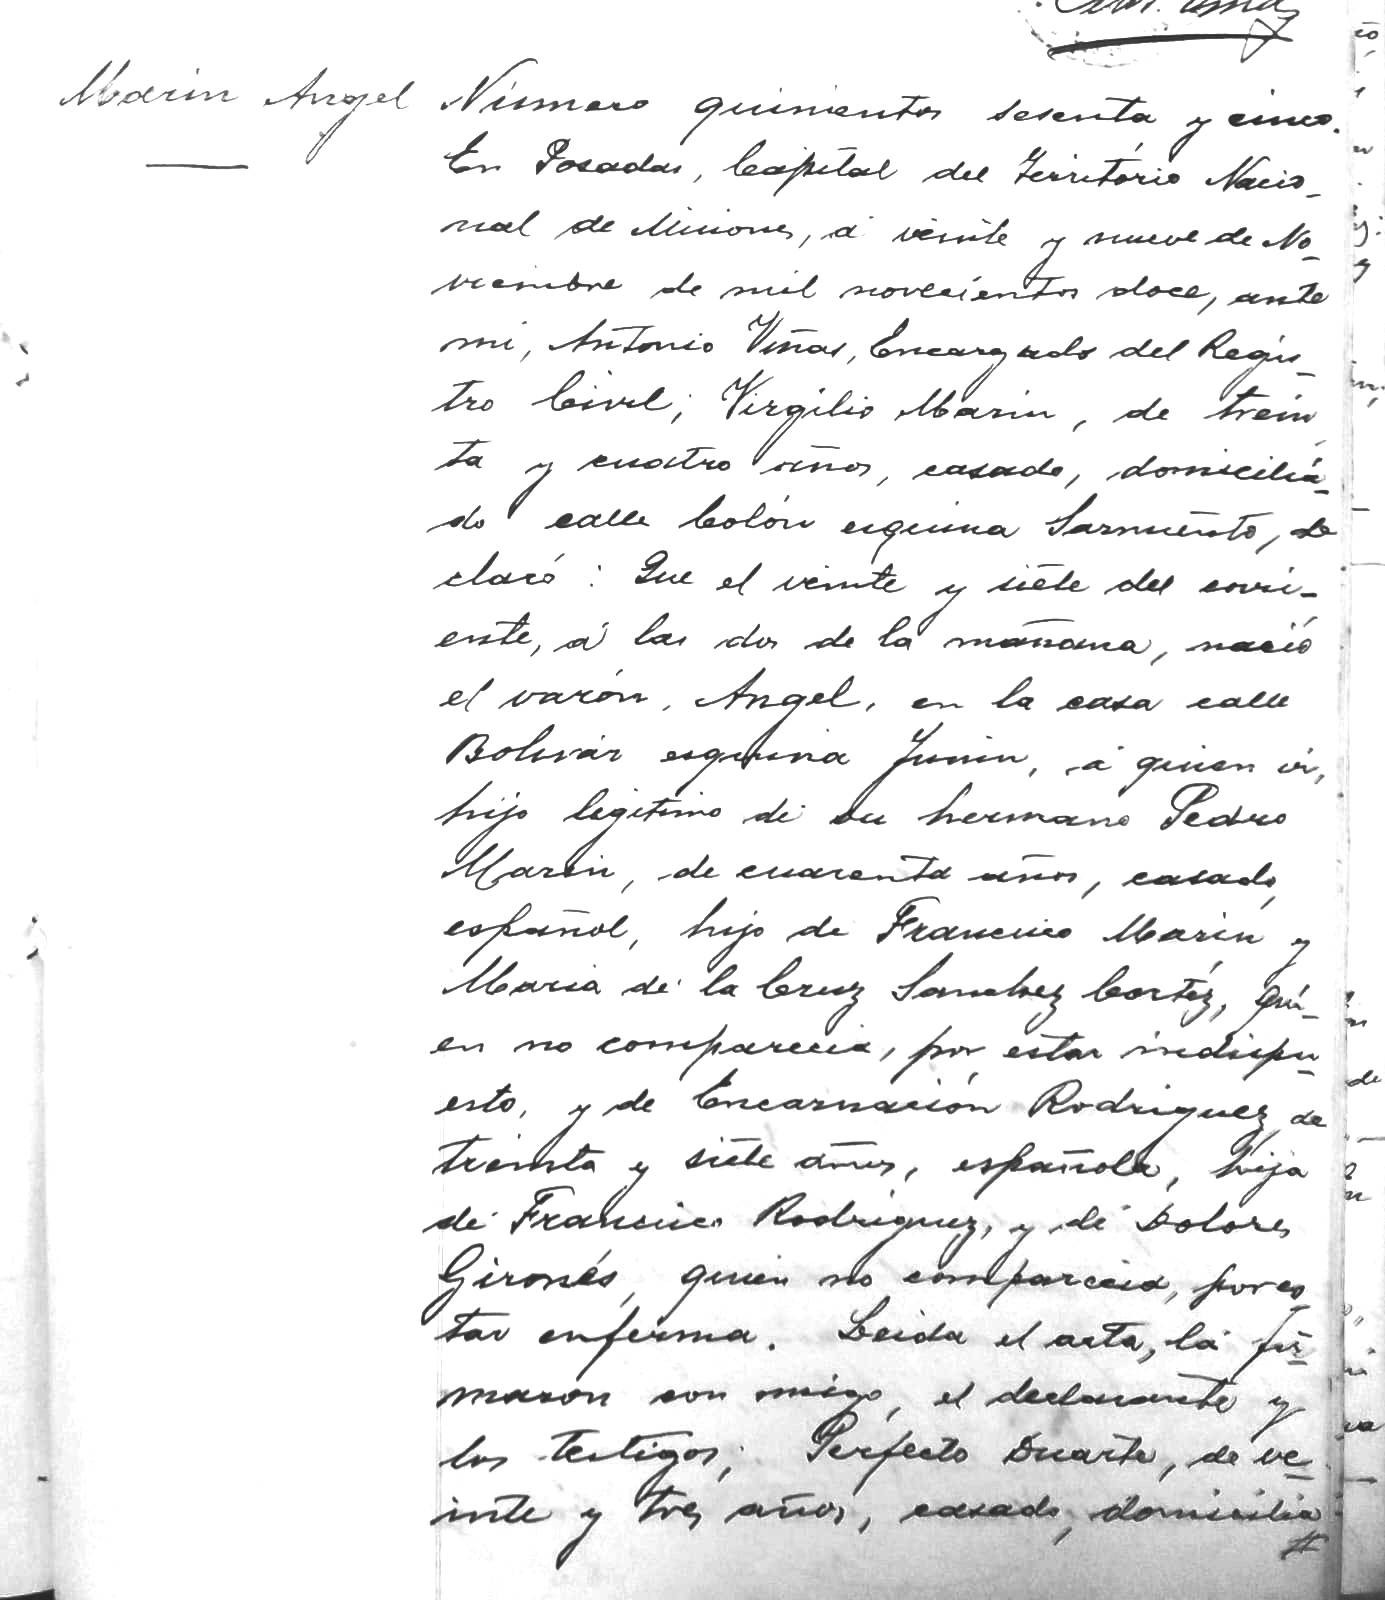 Marin Angel
Número quinientos sesenta y cinco.
En Posadas, Capital del Território Nacio_
nal de Misiones, á veinte y nueve de No_
viembre de mil novecientos doce, ante
mi, Antonio Viñas, Encargado del Regis_
tro Civil; Virgilio Marin, de trein_
ta y cuatro años, casado, domiciliá_
do calle Colón esquina Sarmiento, de
claró: Que el veinte y siete del corri_
ente, á las dos de la mañana, nació
el varón, Angel, en la casa calle
Bolivár esquina Junin, á quien ví,
hijo legitimo de su hermano Pedro
Marin, de cuarenta años, casado,
español, hijo de Francisco Marin y
Maria de la Cruz Sanchez Cortéz, qui_
en no comparecia, por estar indispu_
esto, y de Encarnación Rodriguez, de
treinta y siete años, española, hija
de Francisco Rodriguez, y de Dolores
Gironés, quien no comparecia, por es_
tar enferma. Leida el acta, la fir_
maron con migo, el declarante y
los testigos; Perfecto Duarte, de ve_
inte y tres años, casado, domicilia